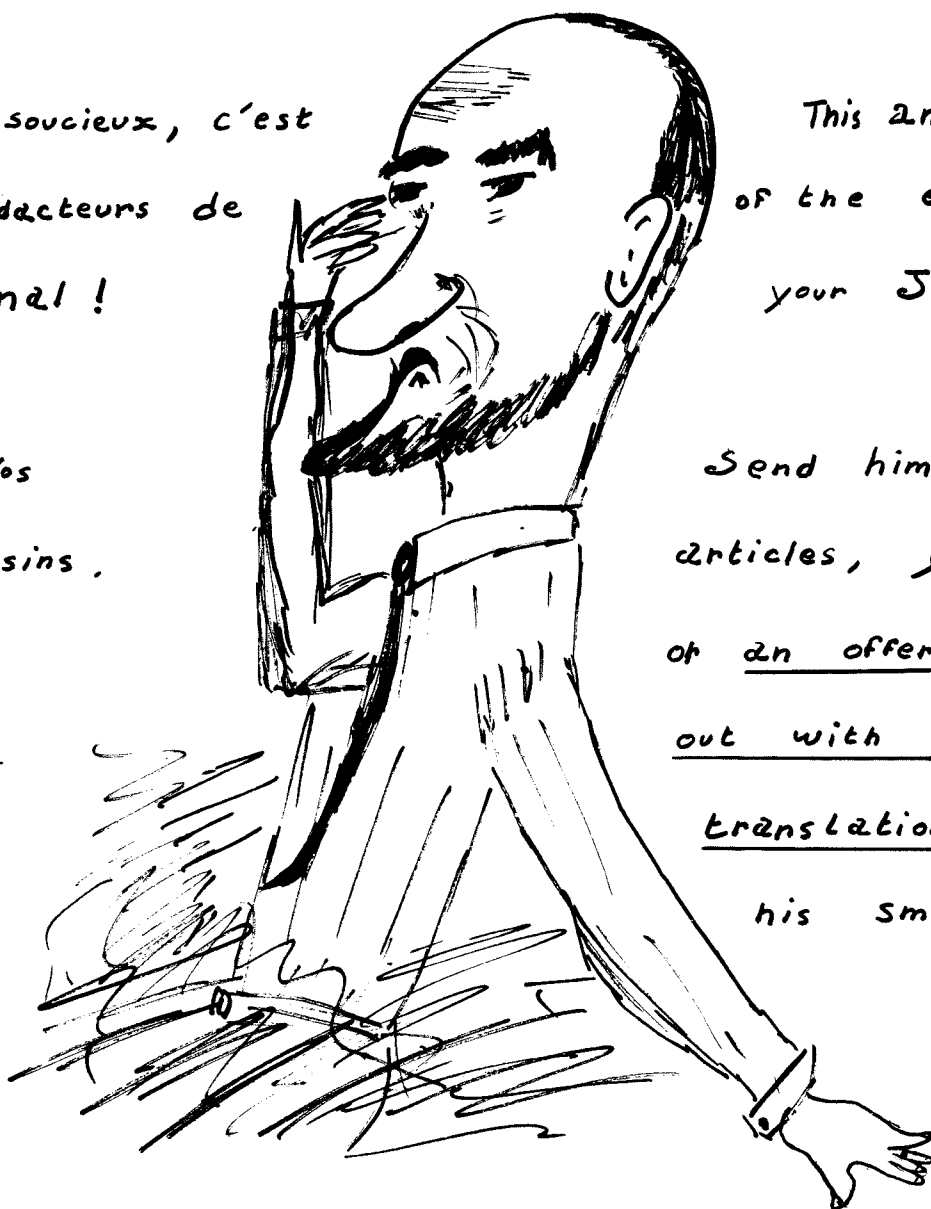 soucieux, c'est
dacteurs de
nal !
os
sins .
This an
of the e
your J
Send him
articles,
or an offer
out with
translation
his sm